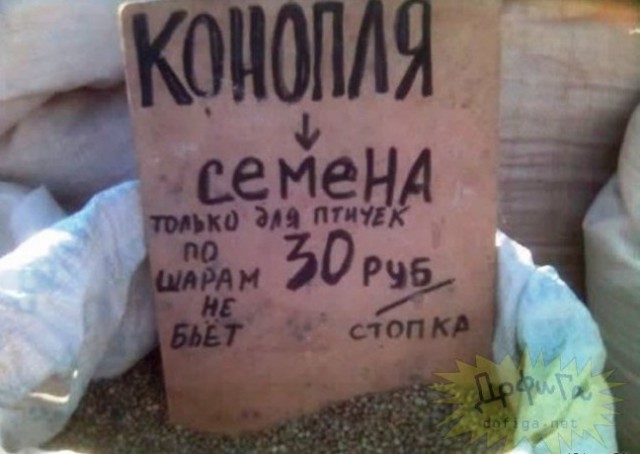 КОНОПЛЯ
↓
семеНА
ТОЛЬКО ДЛЯ ПТИЧЕК
ПО
ШАРАМ
НЕ
БЬЕТ
30 РУБ
СТОПКА
ДофиГа
dofiga.net